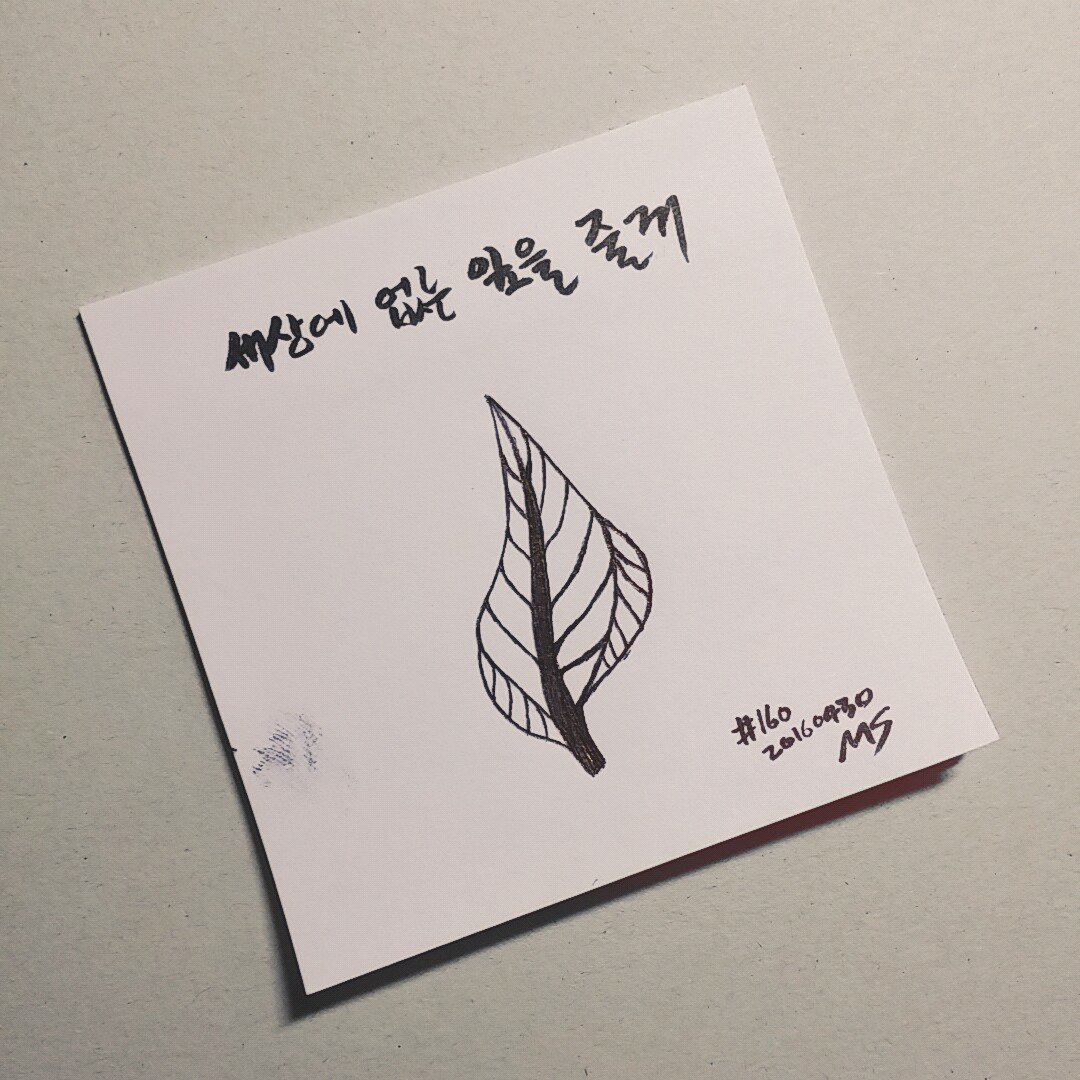 세상에 없는 잎을 줄께
#160
20160430
MS